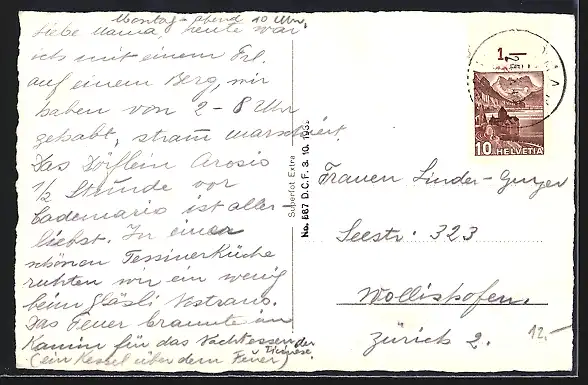 Montag-abend 10 Uhr.
Liebe Mama heute war
ich mit einem Frl.
auf einem Berg, wir
haben von 2-8 Uhr
gehabt, stram̄ marschiert.
Das Dörflein Arosio
1/2 Stunde vor
Cademario ist aller-
liebst. In einer
schönen Tessinerküche
ruhten wir ein wenig
beim Gläsli Nostrano.
Das Feuer brannte im
Kamin für das Nachtessen der
(ein Kessel über dem Feuer) Ticinese.
Superfot Extra
No. 667 D.C.F. 3. 10. 193
1
10 HELVETIA
Frauen Linder-
Seestr. 323
Wollishofen.
Zürich 2.
12.-